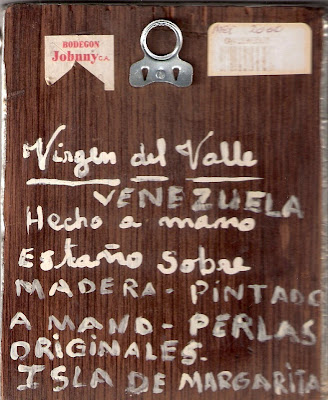 BODEGON
Johnny C.A.
2000
Virgen del Valle
VENEZUELA
Hecho a mano
Estaño sobre
MADERA - PINTADO
A MANO - PERLAS
ORIGINALES.
ISLA DE MARGARITA